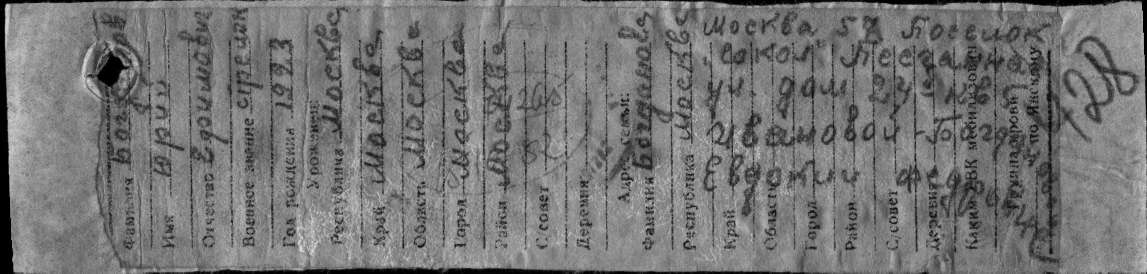 Фамилия Богданов
Имя Юрий
Отчество Ефримович
Военное звание стрелок
Год рождения 1923
Уроженец:
Республика Москва
Край Москва
Область Москва
Город Москва
Район Москва
С/совет
Деревня
Адрес семьи:
Фамилия Богданова
Республика Москва
Край
Область
Город
Район
С/совет
Деревня
Каким РВК мобилизован
Группа крови
по Янскому
Москва 57 Поселок
Сокол Песчаная
ул. дом 24 кв.
Ивановой
Евдокии
128